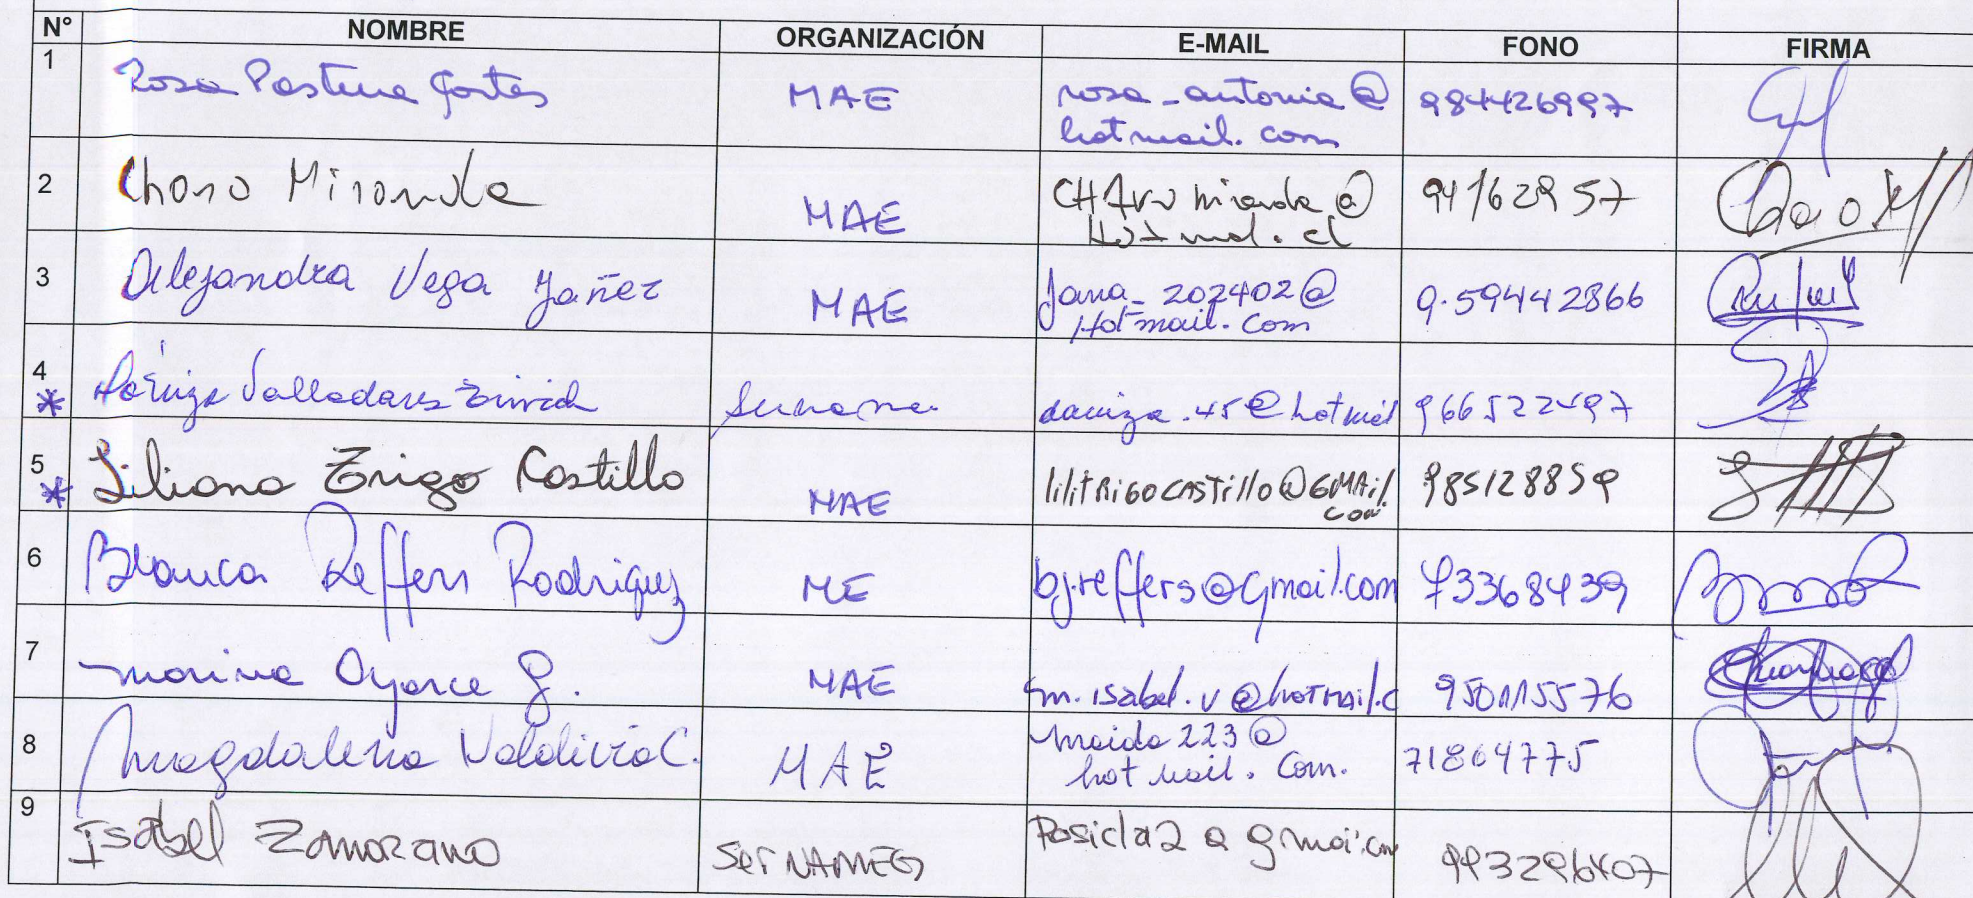 N° NOMBRE ORGANIZACIÓN E-MAIL FONO FIRMA
1 Rosa Pastene Cortes MAE rosa_antonia@
hotmail.com 984426997
2 Charo Miranda MAE CHAromiranda@
Hotmail.cl 94162 957
3 Alejandra Vega Yañez MAE Jana_202402@
Hotmail.com 9.59442866
4
* Valladares daviza.45@hotmail 966522497
5
* Liliana Trigo Castillo MAE lilitRiGoCASTillo@GMAil
com 985128859
6 Blanca Reffers Rodriguez ME bj.reffers@gmail.com 73368439
7 Marina Oyarce G. MAE m.isabel.v@hotmail.c 950115576
8 Magdalena Valdivia C. MAE maida223@
hotmail.Com. 71864775
9 Isabel Zamorano SerNAMEG Posicla2 @ gmai.com 993296407